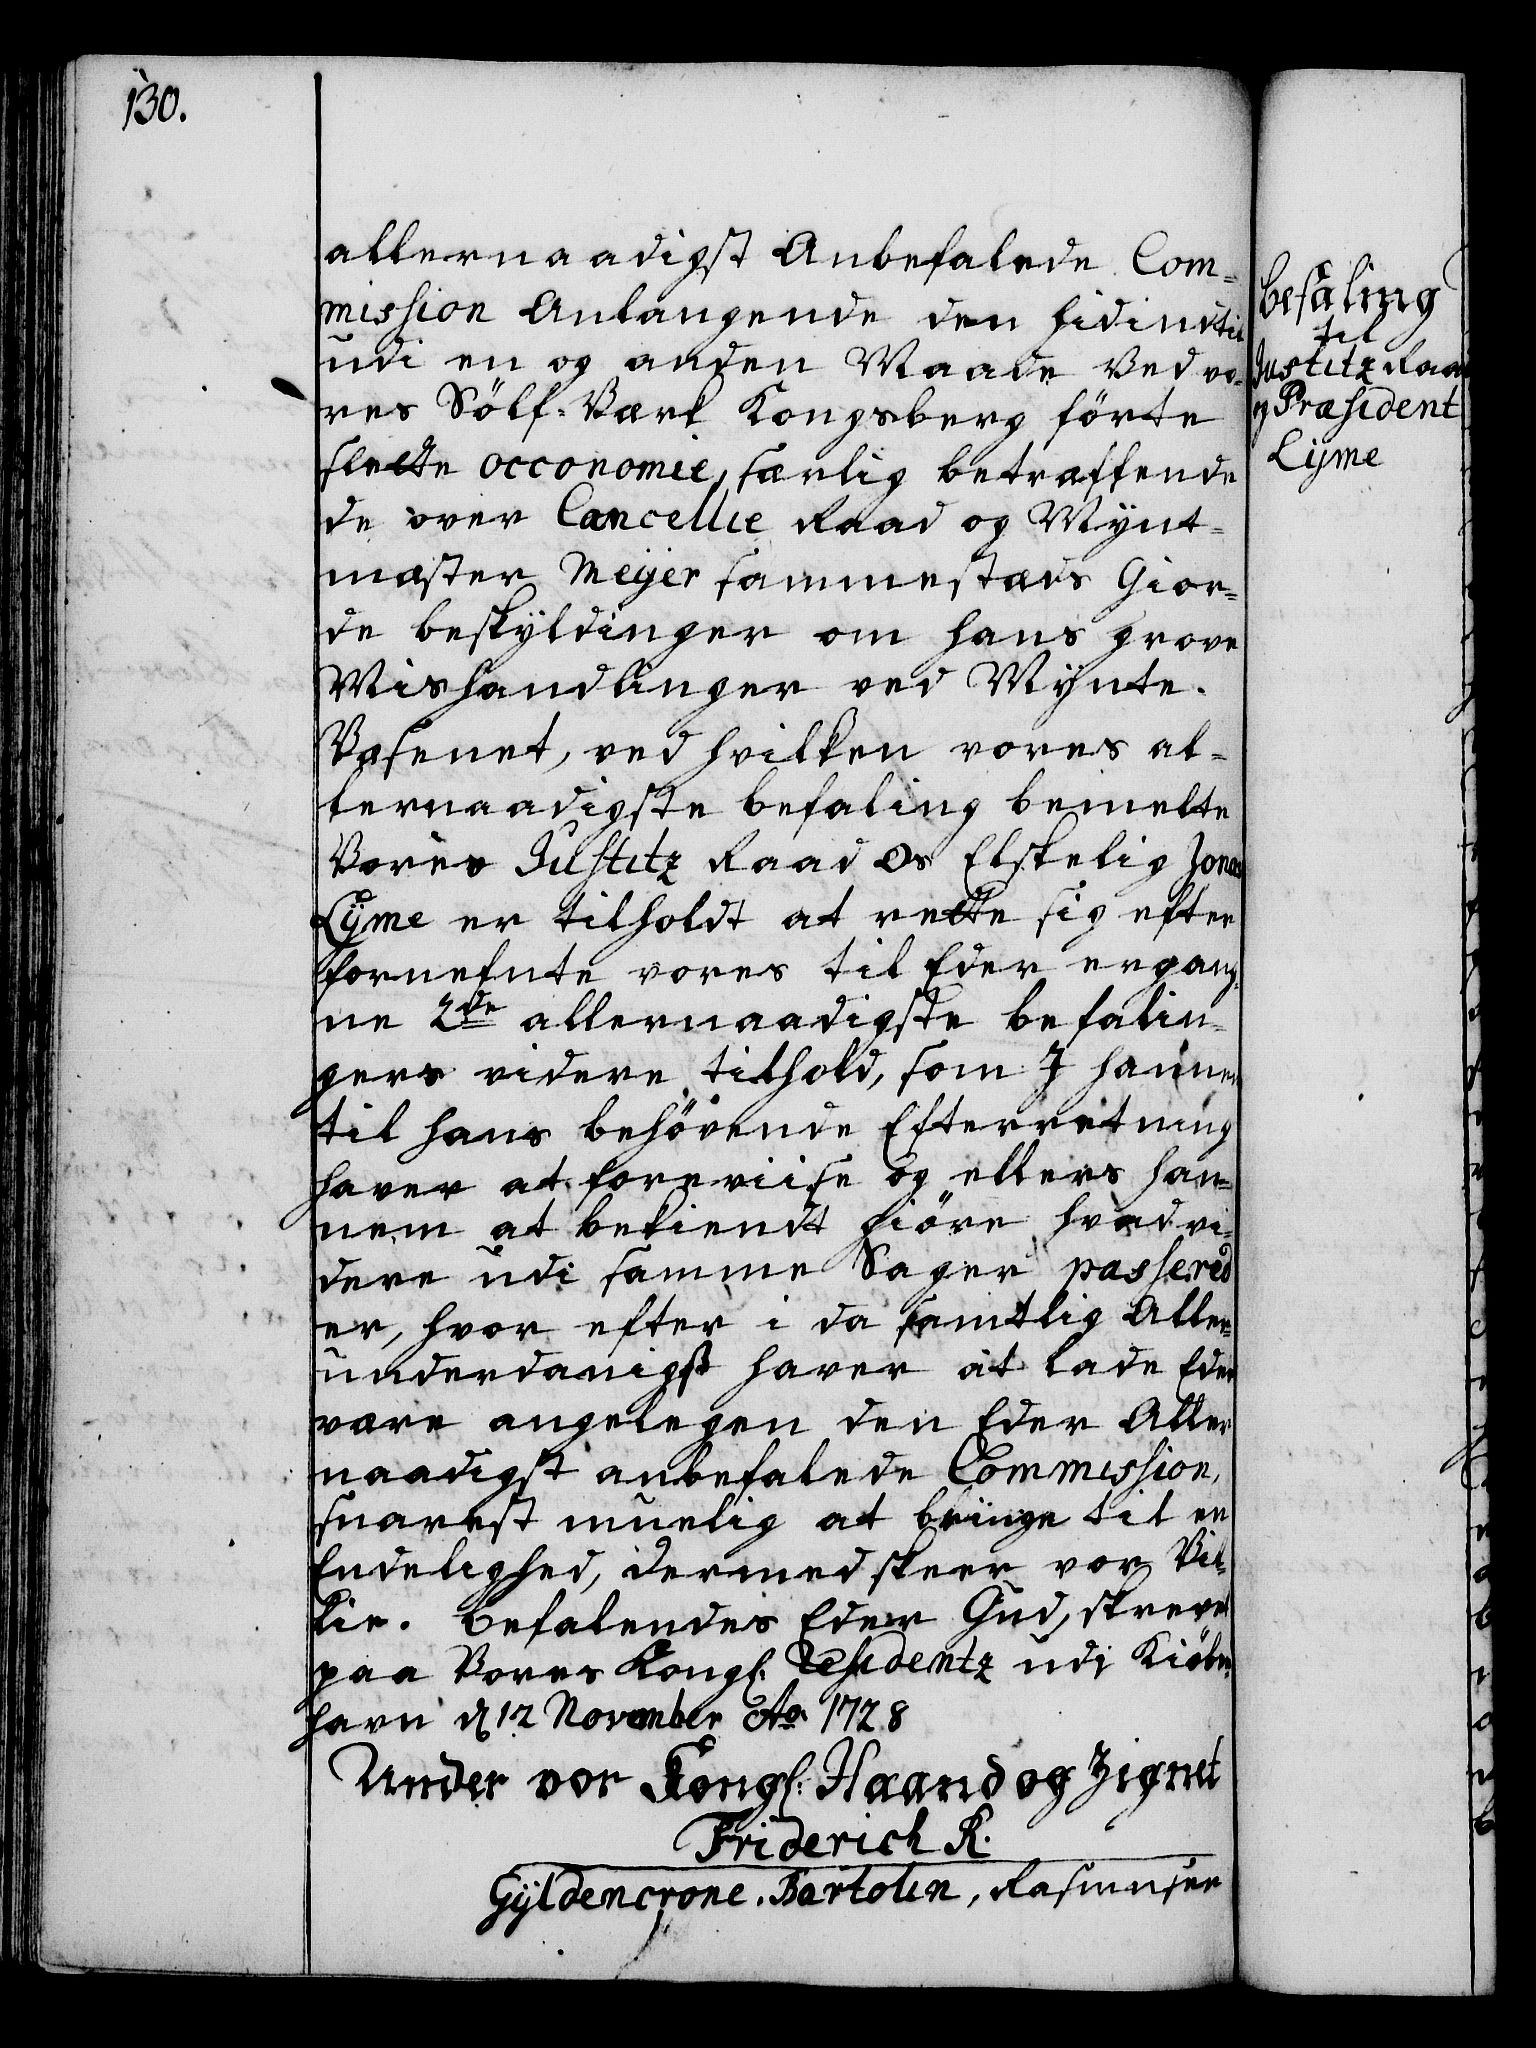 130.
allernaadigst Anbefalede Com-
mission Anlangende den hidindtil
udi en og anden Maade Ved vo-
res Sölf-Værk Kongsberg förte
slette occonomie, særlig betræffende
de over Cancellie Raad og Mÿnt-
mæster Meÿer sammestæds Gior-
de beskÿldinger om hans grove
Mishandlinger ved Mÿnte-
Væsenet, ved hvilken vores al-
lernaadigste befaling bemelte
Vores Justitz Raad Os Elskelig Jonas
Lÿme er tilholdt at rette sig efter
fornefnte vores til Eder ergang-
ne 2de allernaadigste befalin-
gers videre tilhold, som I hannem
til hans behövende Efterretning
haver at foreviise og ellers han-
nem at bekiendt giöre hvad vi-
dere udi samme Sager passered
er, hvor efter i da samtlig Aller-
underdanigst haver at lade Eder
være angelegen den Eder Aller
naadigst anbefalede Commission,
snarest muelig at bringe til en
Endelighed, dermed skeer vor Vil-
lie. Befalendes Eder Gud, skrevet
paa Vores Kongl. Residentz udi Kiöben-
havn d 12 November Ao 1728
Under vor Kongl: Haand og Zignet
Friderich R.
Gÿldencrone. Bartolin, Rasmusen
befaling
til
Justitz Raad
og Præsident
Lÿme